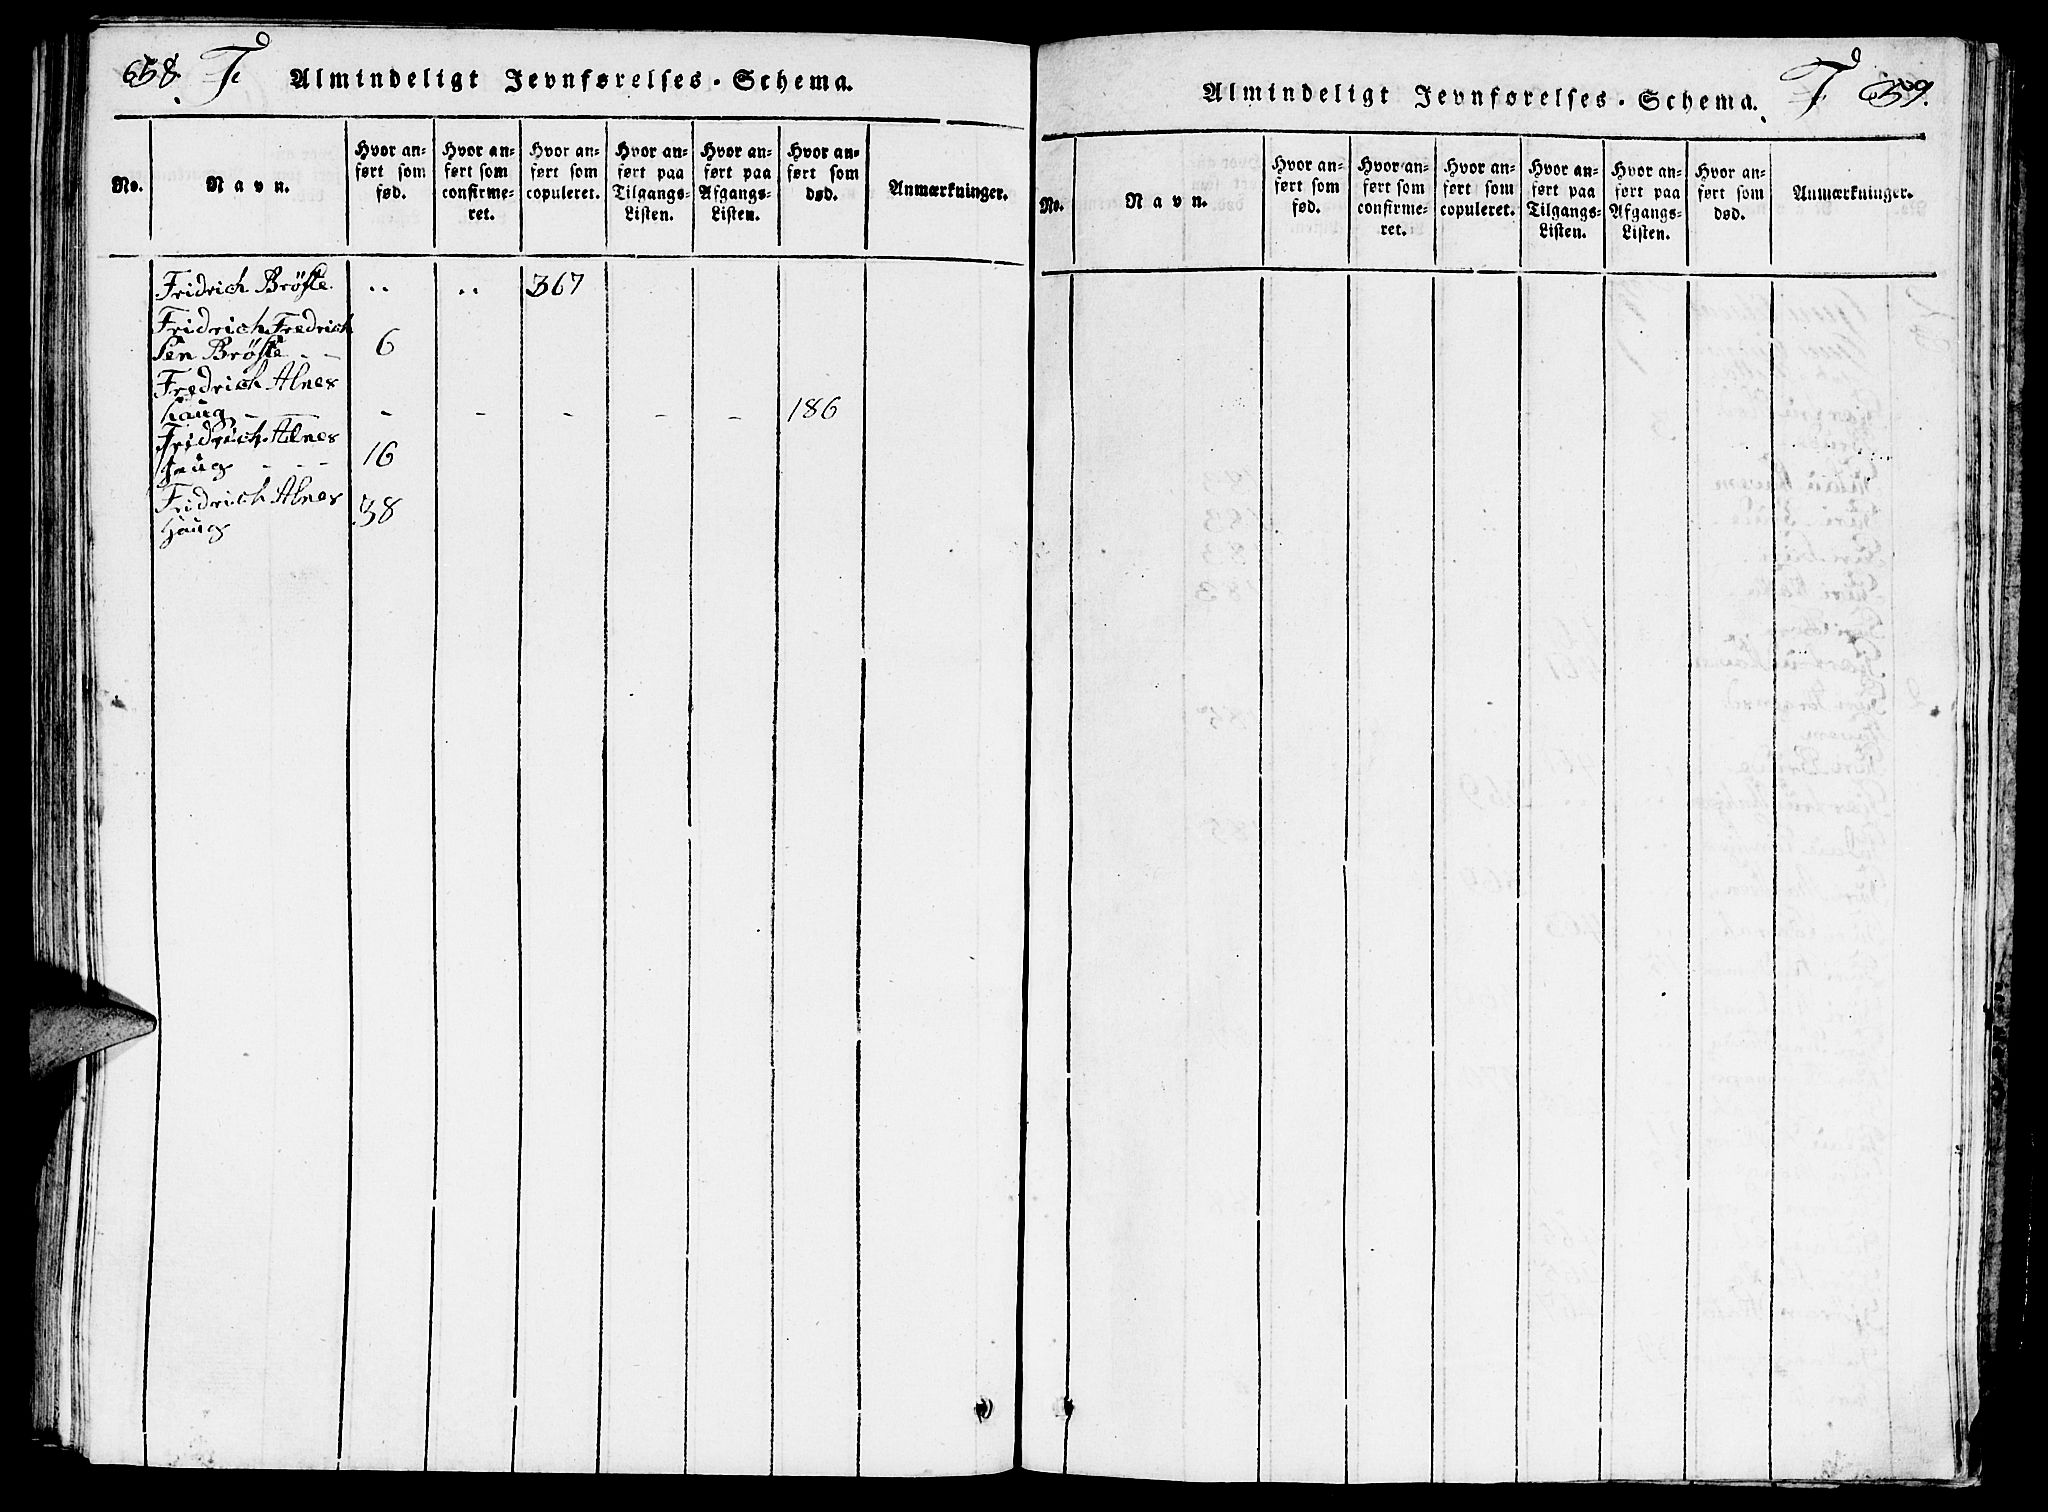 658. F.
Almindeligt Jevnførelses-Schema.
No.
Navn.
Hvor anført som fød.
Hvor anført som confirmeret.
Hvor anført som copuleret.
Hvor anført paa Tilgangs-Listen.
Hvor anført paa Afgangs-Listen.
Hvor anført som død.
Anmærkninger.
Fridrich Brøste .. .. 367
Fridrich Fredrich
sen Brøste - - 6
Fredrich Alnes
haug - - - - - - 186
Fridrich Alnes
haug - - - 16
Fridrich Alnes 38
Haug
Almindeligt Jevnførelses-Schema.
F 659.
No.
Navn.
Hvor anført som fød.
Hvor anført som confirmeret.
Hvor anført som copuleret.
Hvor anført paa Tilgangs-Listen.
Hvor anført paa Afgangs-Listen.
Hvor anført som død.
Anmærkninger.